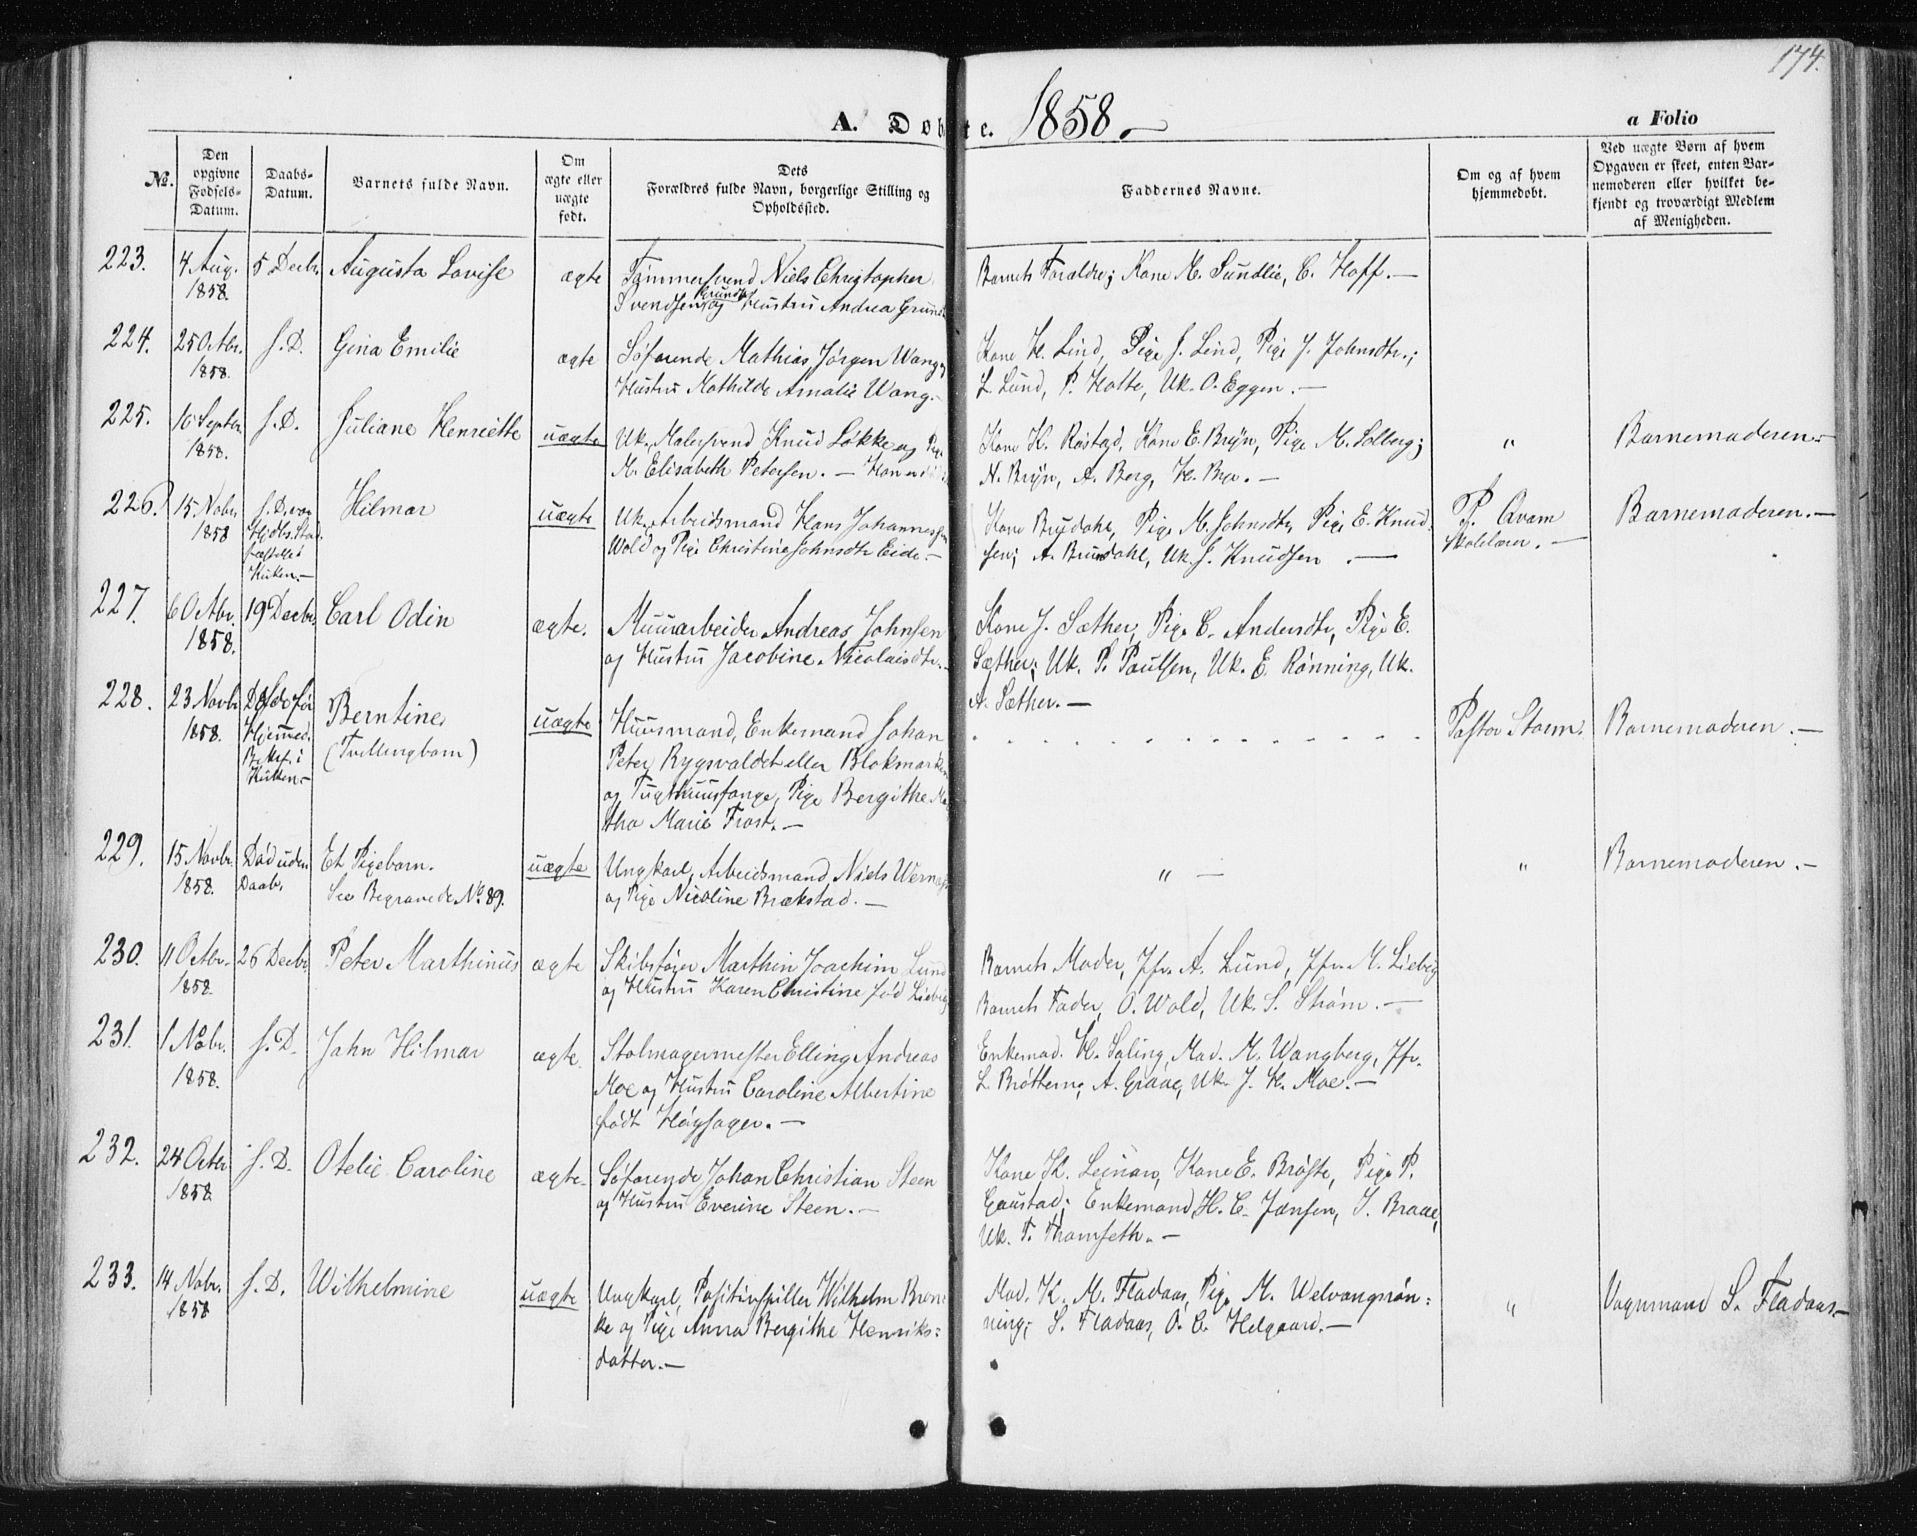 174.
A. Døbte. 1858. —
a Folio
No.
Den opgivne Fødsels-Datum.
Daabs-Datum.
Barnets fulde Navn.
Om ægte eller uægte født.
Dets Forældres fulde Navn, borgerlige Stilling og Opholdssted.
Faddernes Navne.
Om og af hvem hjemmedøbt.
Ved uægte Børn af hvem Opgaven er skeet, enten Barnemoderen eller hvilket bekjendt og troværdigt Medlem af Menigheden.
223. 4 Aug. 1858. 5 Decbr. Augusta Lovise ægte
Tømmersvend Niels Christopher
Svendsen Grundt og Hustru Andrea Grundt
Barnets Forældre; Kone M. Sundlie, C. Hoff. —
224. 25 Octbr. 1858. S. D. Gina Emilie ægte
Søfarende Mathias Jørgen Wang,
Hustru Mathilde Amalie Wang. —
Kone H. Lind, Pige J. Lind, Pige J. Johnsdtr.;
L. Lund, P. Holte, Uk. O. Eggen. —
225. 10 Septbr. 1858. S. D. Juliane Henriette uægte
Uk. Malersvend Knud Løkke og Pige
M. Elisabeth Petersen. —
Kone K. Røstad, Kone E. Bryn, Pige M. Solberg;
N. Bryn, A. Berg, H. Bye. —
" Barnemoderen. —
226. 15 Novbr. 1858 S. D. var Hjdbs. Stadfæstelse i Kirken. — Hilmar uægte
Uk. Arbeidsmand Hans Johannessen
Wold og Pige Christine Johnsdtr Eide. —
Kone Brudahl, Pige M. Johnsdtr, Pige E. Knud-
sen; A. Brundahl, Uk. J. Knudsen. —
P. Qvam Skolelærer. — Barnemoderen. —
227. 6 Octbr. 1858. 19 Decbr. Carl Odin ægte.
Muurarbeider Andreas Johnsen
og Hustru Jacobine Nicolaisdtr. —
Kone J. Sæther, Pige C. Andersdtr, Pige E.
Sæther; Uk. P. Paulsen, Uk. E. Rønning, Uk.
A. Sæther. —
228. 23 Novbr. 1858. Døde før Hjemmed. Bekf. i Kirken. — Berntine (Tvillingbarn) uægte
Huusmand, Enkemand Johan
Peter Rygvoldet eller Blokmarken
og Tugthuusfange, Pige Bergithe Mar-
tha Marie Frost. —
Pastor Storm. Barnemoderen. —
229. 15 Novbr. 1858. Død uden Daab. Et Pigebarn. See Begravede No 89. uægte
Ungkarl, Arbeidsmand Niels Wernes
og Pige Nicoline Brækstad. —
" —
" Barnemoderen. —
230. 11 Octbr. 1858. 26 Decbr Peter Marthinus ægte
Skibsfører Marthin Joachim Lund
og Hustru Karen Christine fød Liebig
Barnets Moder, Jfr. A. Lund, Jfr. M. Liebig
Barnets Fader, O. Wold, Uk. S. Strøm. —
231. 1 Novbr. 1858. S. D. John Hilmar ægte.
Stolmagermester Elling Andreas
Moe og Hustru Caroline Albertine
født Høysager. —
Enkemad. H. Soling, Mad. M. Wangberg, Jfr.
L. Brøttem; A. Graae, Uk. J. H. Moe. —
232. 24 Octbr. 1858 S. D. Otelie Caroline ægte.
Søfarende Johan Christian Steen
og Hustru Everine Steen. —
Kone K. Leinan, Kone E. Brøste, Pige P.
Gaustad; Enkemand H. C. Jansen, I. Braae,
Uk. T. Thomseth. —
233. 14 Novbr. 1858 S. D. Wilhelmine uægte
Ungkarl, Positivspiller Wilhelm Bren-
ke og Pige Anna Bergithe Henriks-
datter. —
Mad. K. M. Fladaas, Pige M. Welvangsrøn-
ning; S. Fladaas, O. C. Helgaard. —
" Vognmand S. Fladaas —